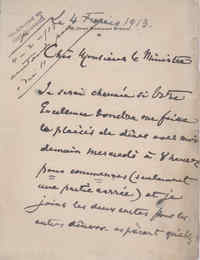 le 4 Février 1913.
Cher Monsieur le Ministre
Je serai charmée si Votre
Excellence voudra me faire
le plaisir de dîner avec moi
demain mercredi à 8 heures
pour commencer (seulement
une partie carrée) et je
joins les deux cartes pour les
autres dîners. espérant qu'elles